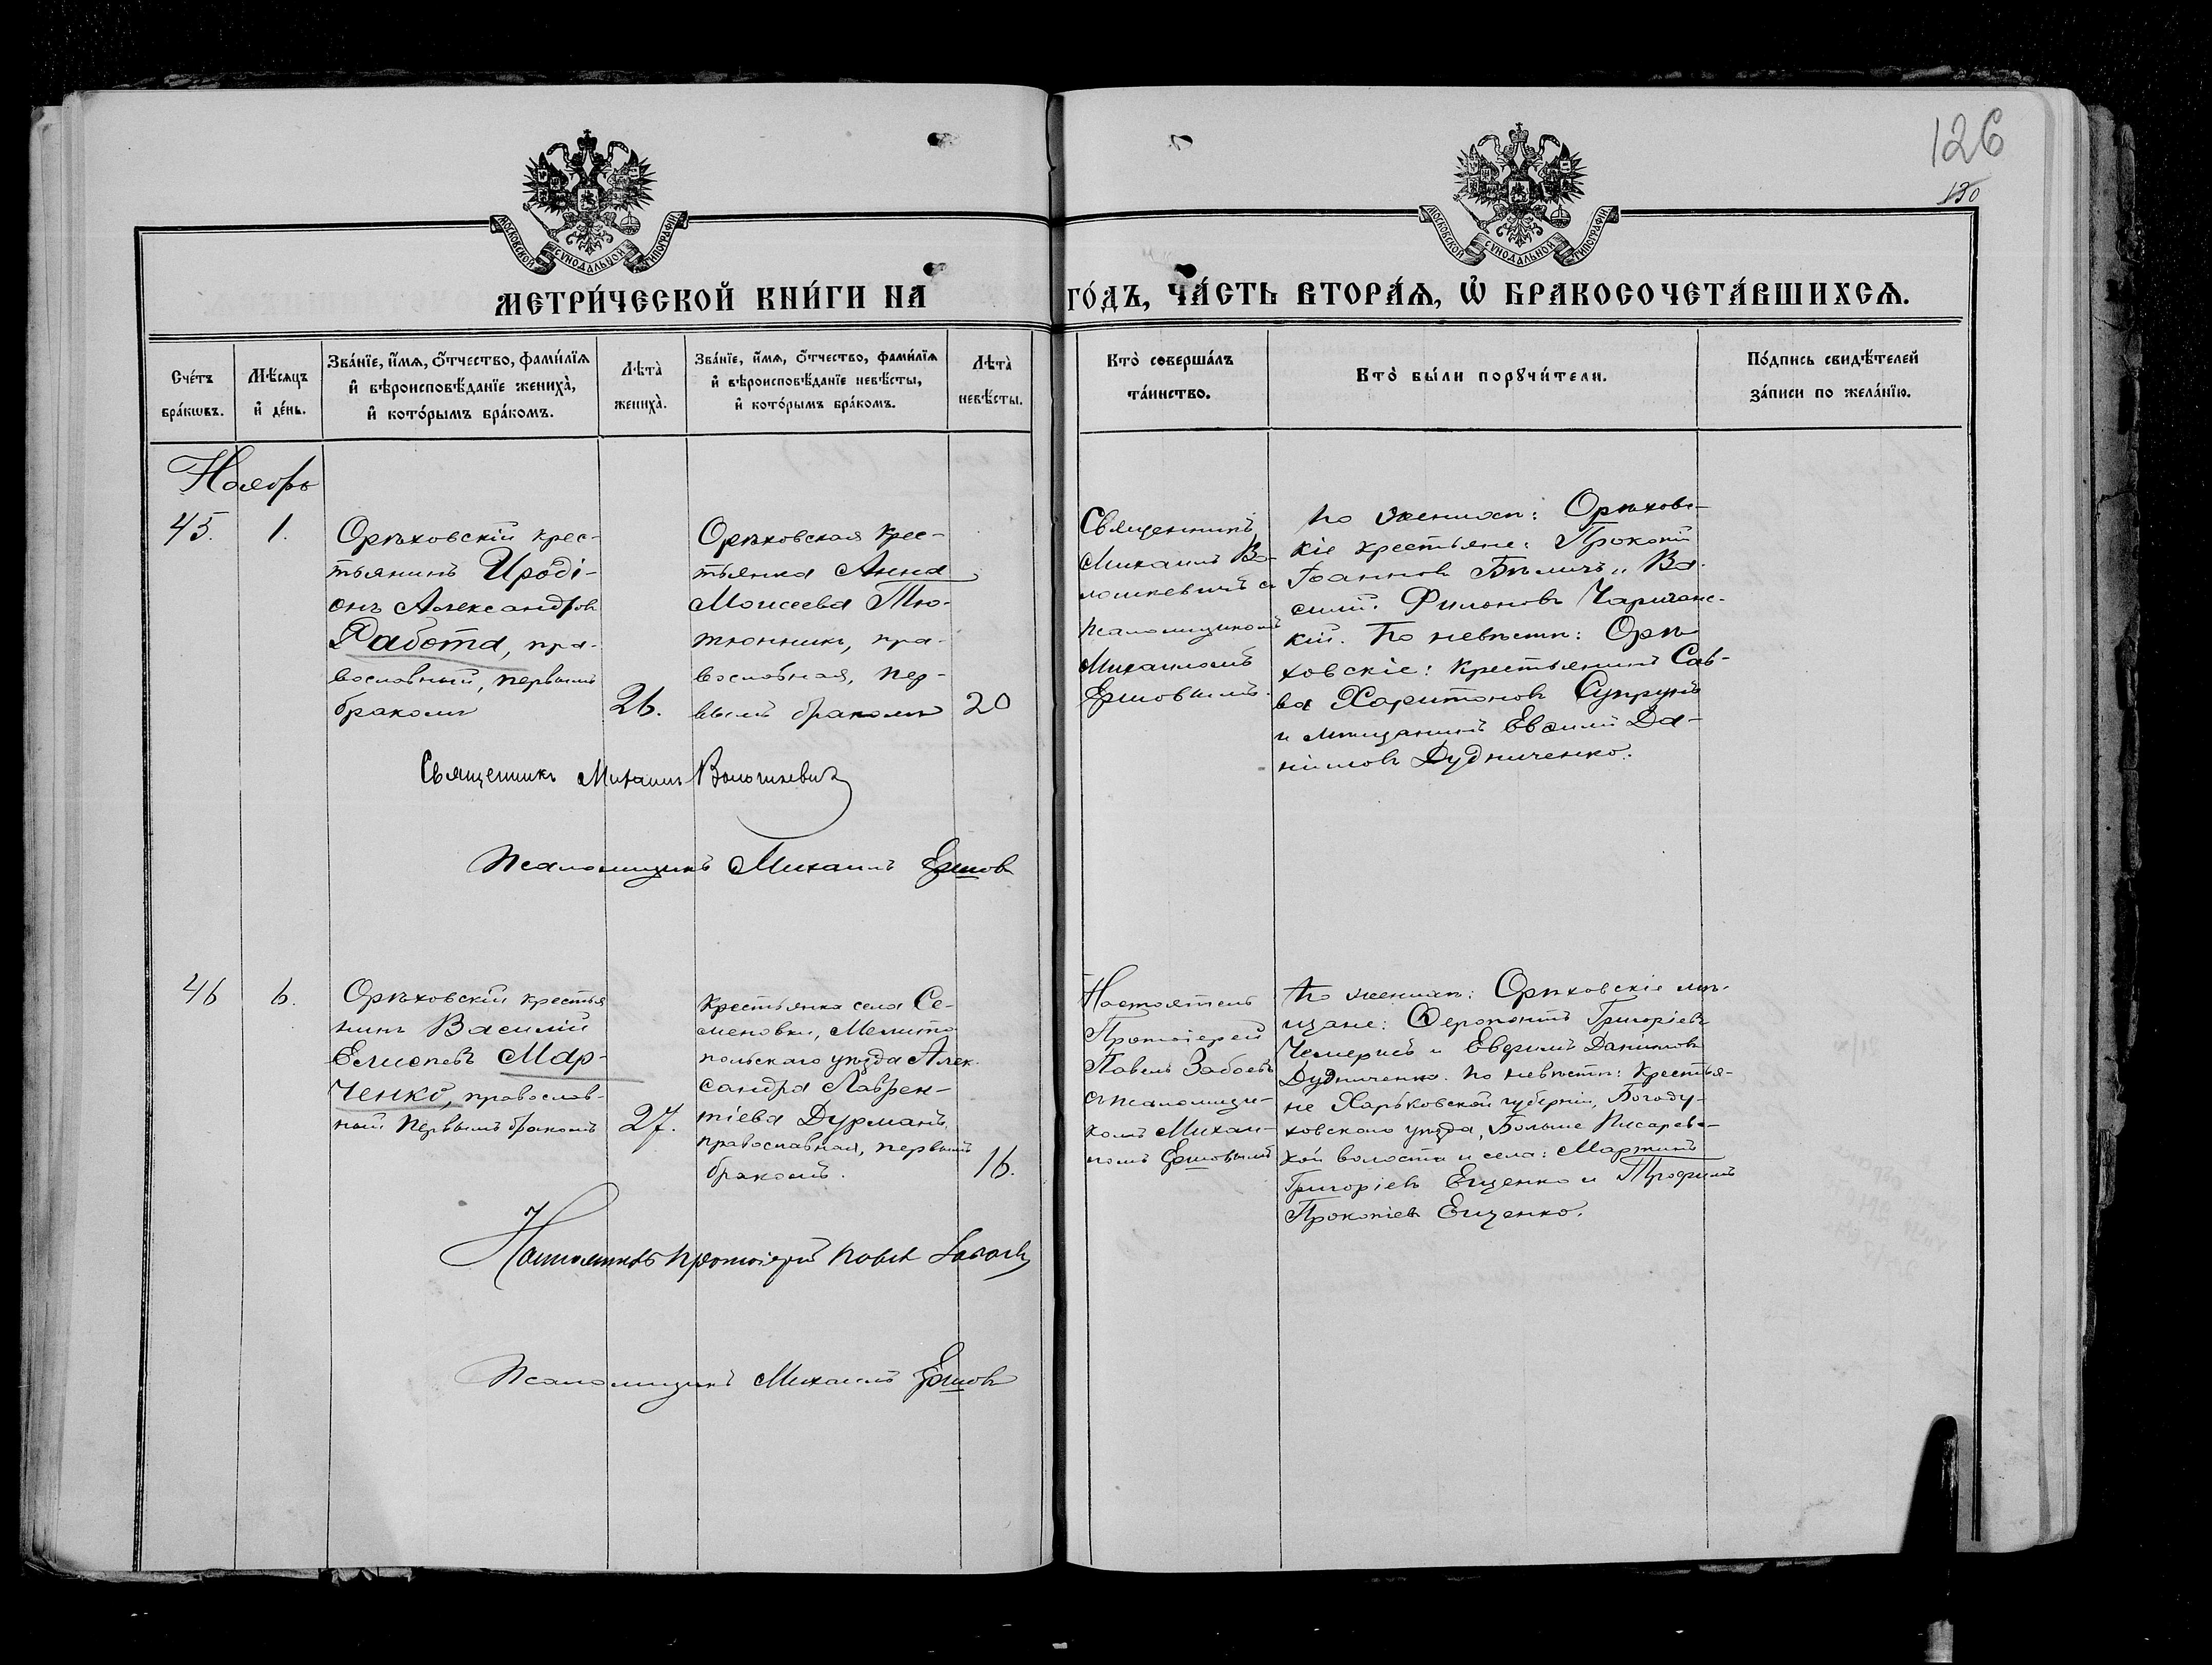 126
130
МОСКОВСКОЙ СѴНОДАЛЬНОЙ ТИПОГРАФІИ
МОСКОВСКОЙ СѴНОДАЛЬНОЙ ТИПОГРАФІИ
МЕТРИ́ЧЕСКОЙ КНИ́ГИ НА ГО́ДЪ, ЧА́СТЬ ВТОРА́Ѧ, Ѽ БРАКОСОЧЕТА́ВШИХСѦ.
Сче́тъ
бра́кѡвъ.
Мѣ́сяцъ
и҆ де́нь.
Зва́нїе, и҆́мя, ѻ҆́тчество, фами́лїя
и҆ вѣроисповѣ́данїе жениха̀,
и҆ кото́рымъ бра́комъ.
Лѣта̀
жениха̀.
Зва́нїе, и҆́мя, ѻ҆́тчество, фами́лїя
и҆ вѣроисповѣ́данїе невѣ́сты,
и҆ кото́рымъ бра́комъ.
Лѣта̀
невѣ́сты.
Кто̀ соверша́лъ
та́инство.
Кто̀ бы́ли порꙋчи́тели.
По́дпись свидѣ́телей
за́писи по жела́нїю.
Ноябрь
45.
1.
Орѣховскій крес-
тьянинъ Иродi-
онъ Александров
Работа, пра-
вославный, первымъ
бракомъ
26.
Орѣховская крес-
тьянка Анна
Моисеева Тю-
тюнникъ, пра-
вославная, пер-
вымъ бракомъ
20
Священникъ
Михаилъ Во-
лошкевичъ съ
псаломщикомъ
Михаиломъ
Ершовымъ.
По женихѣ: Орѣховс-
кіе крестьяне: Прокопій
Іоанновъ Бѣличъ и Ва-
силій Филоновъ Чаричанс-
кій. По невѣстѣ: Орѣ-
ховскіе: крестьянинъ Сав-
ва Харитоновъ Супрунъ
и мѣщанинъ Евфимій Да-
ніиловъ Дудниченко.
Священникъ Михаилъ Волошкевичъ
Псаломщикъ Михаилъ Ершовъ
46
6.
Орѣховскій крестья
нинъ Василій
Елисѣевъ Мар-
ченко, православ-
ный первымъ бракомъ
27.
Крестьянка села Се-
меновки, Мелито-
польскаго уѣзда Алек-
сандра Лаврен-
тіева Дурманъ,
православная, первымъ
бракомъ.
16.
Настоятель
Протоіерей
Павелъ Забаевъ
съ псаломщи-
комъ Михаи-
ломъ Ершовымъ
По женихѣ: Орѣховскіе мѣ-
щане: Ѳерапонтъ Григоріевъ
Чемерисъ и Евфимъ Даниловъ
Дудниченко. По невѣстѣ: крестья-
не Харьковской губерніи, Богоду-
ховскаго уѣзда, Больше Писаревс-
кой волости и села: Мартинъ
Григоріевъ Ещенко и Трофимъ
Прокопіевъ Ещенко.
Настоятель Протоіерей Павелъ
Псаломщикъ Михаилъ Ершовъ